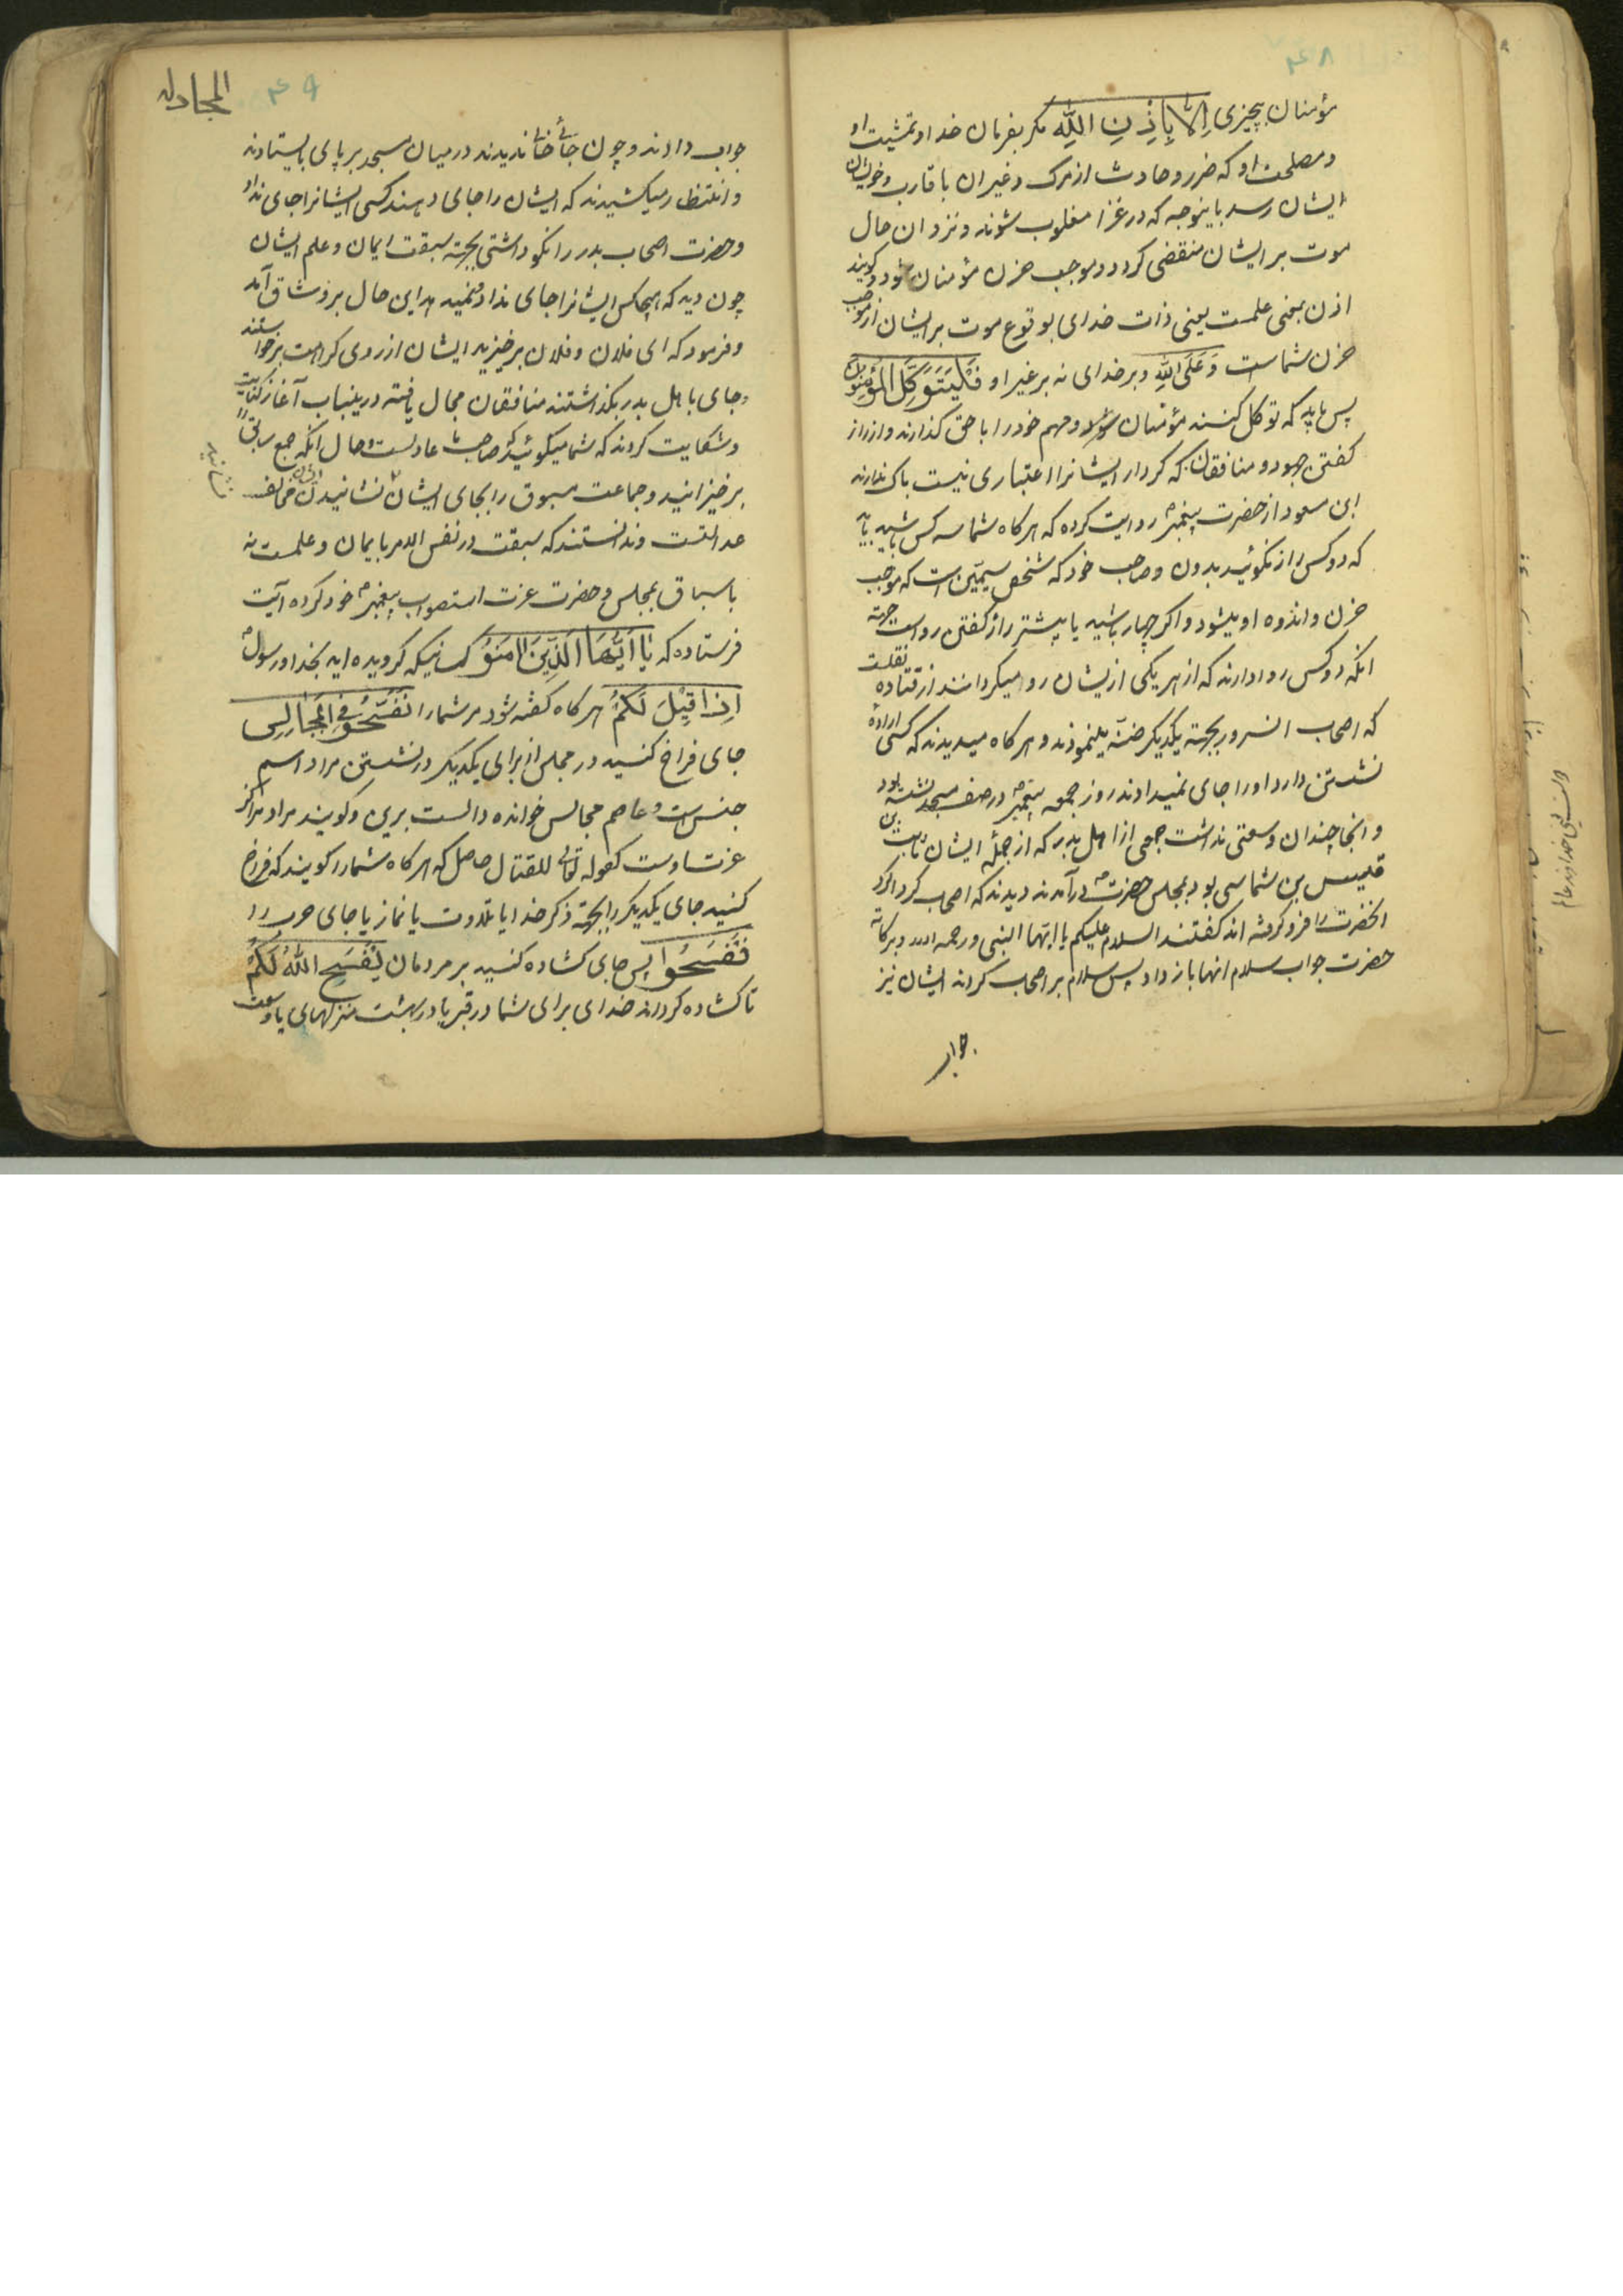 ۴۸
مؤمنان بچیزی اِلّا بِاِذْنِ اللهِ مکر بفرمان خدا و تمشیت او
و مصلحت او که ضرر و حادث از مرک و غیر ان باقارب و خویشان
ایشان رسد باینوجه که در غزا مغلوب شوند و نزد ان حال
موت بر ایشان منقضی کردد و موجب حزن مؤمنان شود و کویند
اذن بمعنی علمست یعنی ذات خدای بوقوع موت بر ایشان از موجب
حزن شماست وَعَلَی اللهِ و بر خدای نه بر غیر او فَلْیَتَوَکَّلِ المُؤْمِنُونَ
پس باید که توکل کنند مؤمنان و مهم خود را با حق کذارند و از راز
کفتن جهود و منافقان که کردار ایشانرا اعتباری نیست باک ندارند
ابن مسعود از حضرت پیغمبر روایت کرده که هر کاه شما سه کس باشید باید
که دو کس راز نکوئید بدون صاحب خود که شخص سیمین است که موجب
حزن و اندوه او میشود و اکر چهار باشید یا بیشتر راز کفتن رواست جهته
انکه دو کس روا دارند که از هر یکی ازیشان رو میکردانند از قتاده نقلست
که اصحاب انسرور بجهته یکدیکر ضنّه مینمودند و هر کاه میدیدند که کسی اراده
نشستن دارد او را جای نمیدادند روز جمعه پیغمبر در صف مسجد نشسته بود
و انجا چندان وسعتی نداشت جمعی از اهل بدر که از جمله ایشان ثابت بن
قلیس بن شماسی بود بمجلس حضرت درآمدند دیدند که اصحاب کرداکرد
انحضرت را فرو کرفته اند کفتند السلام علیکم یا ایها النبی و رحمه الله و برکاته
حضرت جواب سلام انهما باز داد پس سلام بر اصحاب کردند ایشان نیز
جواب
المجادله ۴۹
جواب دادند و چون جائی خالی ندیدند در میان مسجد بر پای بایستادند
و انتظار میکشیدند که ایشان را جای دهند کسی ایشانرا جای نداد
و حضرت اصحاب بدر را نکو داشتی بجهته سبقت ایمان و علم ایشان
چون دید که هیچکس ایشانرا جای نداد این حال برو شاق آمد
و فرمود که ای فلان و فلان برخیزید ایشان از روی کراهت برخواستند
و جای با اهل بدر بکذاشتند منافقان مجال یافته درینباب آغاز
و شکایت کردند که شما میکوئید که صاحب ما عادلست و حال انکه جمع سابق را
برخیزانید و جماعت مسبوق را بجای ایشان نشانید و این مخالف
عدالتست و ندانستند که سبقت در نفس الامر بایمان و علمست نه
باسباق بمجلس و حضرت عزت استصواب پیغمبر خود کرده آیت
فرستاده که یا اَیُّهَا الَّذِینَ اٰمَنُوْ کسانیکه کرویده اید بخدا و رسول
اِذَا قِیْلَ لَکُمْ هر کاه کفته شود مر شما را تَفَسَّحُوْ فِی الْمَجَالِسِ
جای فراخ کنید در مجلس از برای یکدیکر در نشستن مراد اسم
جنس است و عاصم مجالس خوانده دالست برین و کویند مراد مراکز
غزتساوست کقوله تعالی للقتال حاصل که هر کاه شما را کویند که فراخ
کنید جای یکدیکر را بجهته ذکر خدا یا تلاوت یا نماز یا جای حرب را
فَفَسَحُوا پس جای کشاده کنید بر مردمان یَفْسَحِ اللهُ لَکُمْ
تا کشاده کرداند خدای برای شما در قبر یا در بهشت منزلهای با وسعت